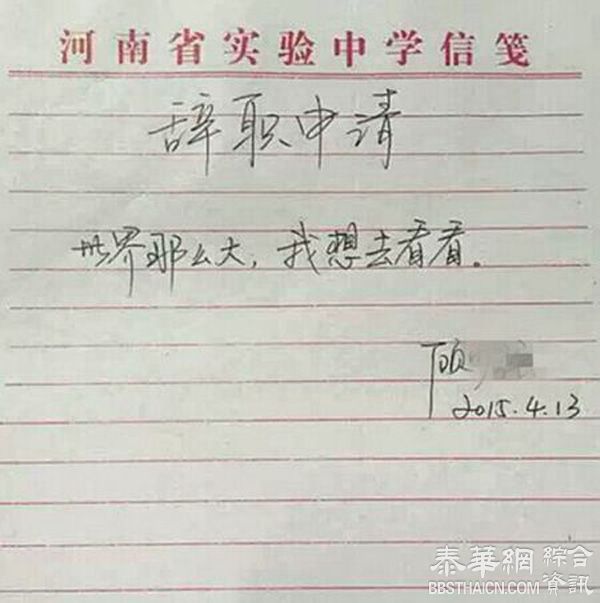 河南省实验中学信笺
辞职申请
世界那么大，我想去看看。
顾
2015.4.13
泰華網 綜合資訊
BBSTHAICN.COM